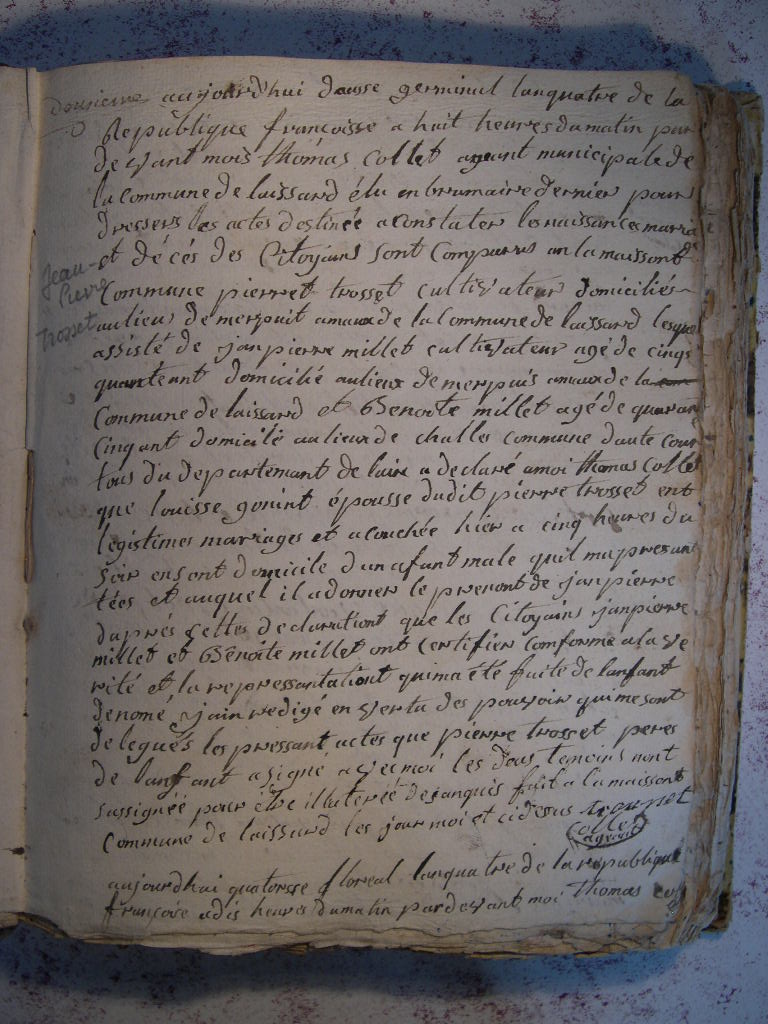 deusieme aujourd'hui dousse germinal lanquatre de la
Republique francoisse a huit heures du matin par
devant mois thomas Collet agent municipale de
la Commune de laissard élu en brumaire dernier pour
dressers les actes destinée a constater les naissances marria
et décés des Citoyains sont Comparus an la maissont
Jean-Pierre Trosset
Commune pierret trosset cultivateur domiciliés
aulieu de merpuit amaux de la Commune de laissard lesquel
assisté de janpierre millet cultivateur agé de cinqs
quantent domicilié aulieux de merpuis amaux de la
Commune de laissard et Benoite millet agé de quaran
Cinqant domicilé aulieux de challes commune daute cour
tous du departemant de lain a declaré amoi thomas Collet
que louisse gonint épousse dudit pierre trosset ent
legistimes marriages et acouchée hier a cinq heures du
soir ensont domicile dun afant male quil ma presan
tées et auquel il a donner le prenont de janpierre
daprés settes declarationt que les Citoyains janpierre
millet et Benoite millet ont certifier conforme a la ve
rité et la repressantationt quima été faite de lanfant
denomé, jain redigé en vertu des pouvoir quime sont
delegués les pressant actes que pierre trosset peres
de lanfant a signé avec moi les dous temoins nont
sassignée pour étre illuterée dejanquis fait a la maissont
Commune de laissard les jour moi et cidesus trosset
Collet
agent
aujourdhui quatorsse floreal lanquatre de la republique
françoise adis heures dumatin pardevant moi thomas col